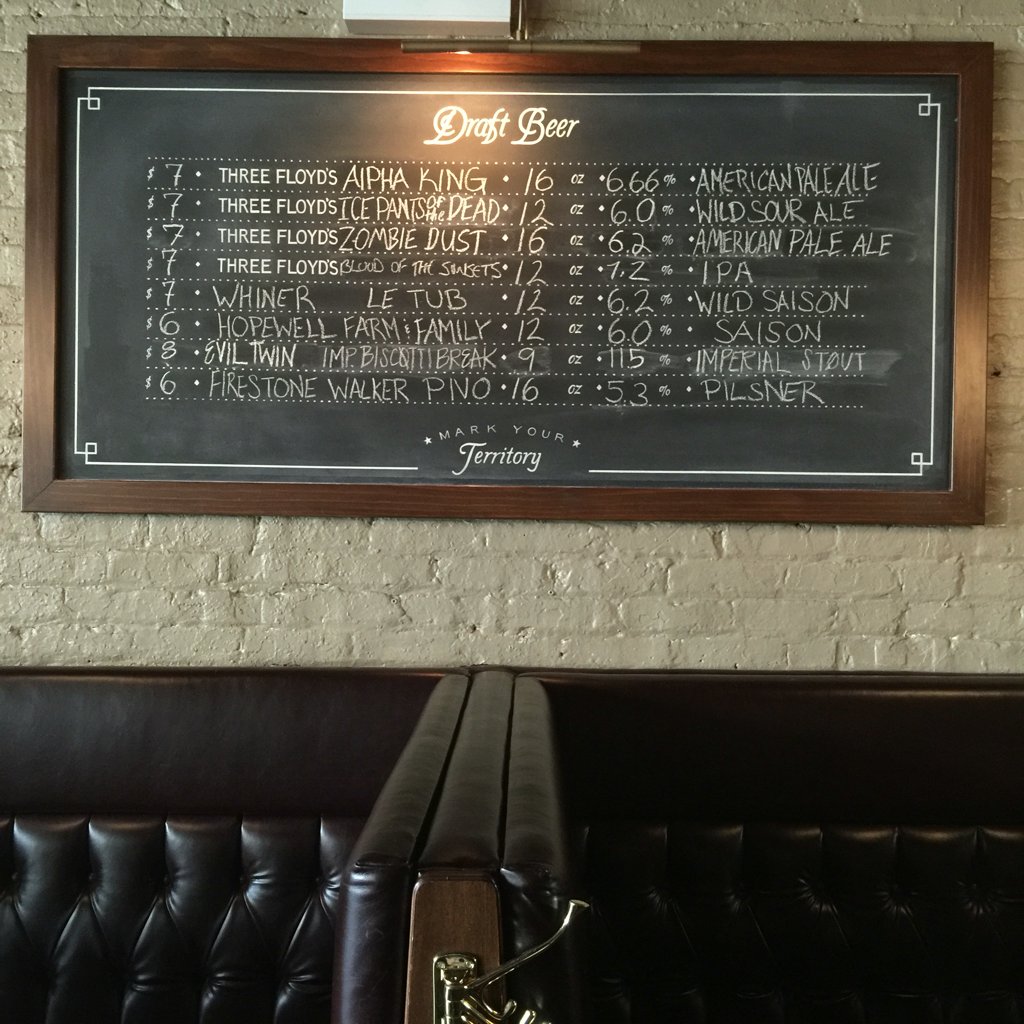 Draft Beer
$7 • THREE FLOYD'S ALPHA KING • 16 oz • 6.66% • AMERICAN PALE ALE
$7 • THREE FLOYD'S ICE PANTS OF THE DEAD • 12 oz • 6.0% • WILD SOUR ALE
$7 • THREE FLOYD'S ZOMBIE DUST • 16 oz • 6.2% • AMERICAN PALE ALE
$7 • THREE FLOYD'S BLOOD OF THE SUNSETS • 12 oz • 7.2% • IPA
$7 • WHINER LE TUB • 12 oz • 6.2% • WILD SAISON
$6 • HOPEWELL FARM & FAMILY • 12 oz • 6.0% • SAISON
$8 • EVIL TWIN IMP. BISCOTTI BREAK • 9 oz • 11.5% • IMPERIAL STOUT
$6 • FIRESTONE WALKER PIVO • 16 oz • 5.3% • PILSNER
★ MARK YOUR ★
Territory